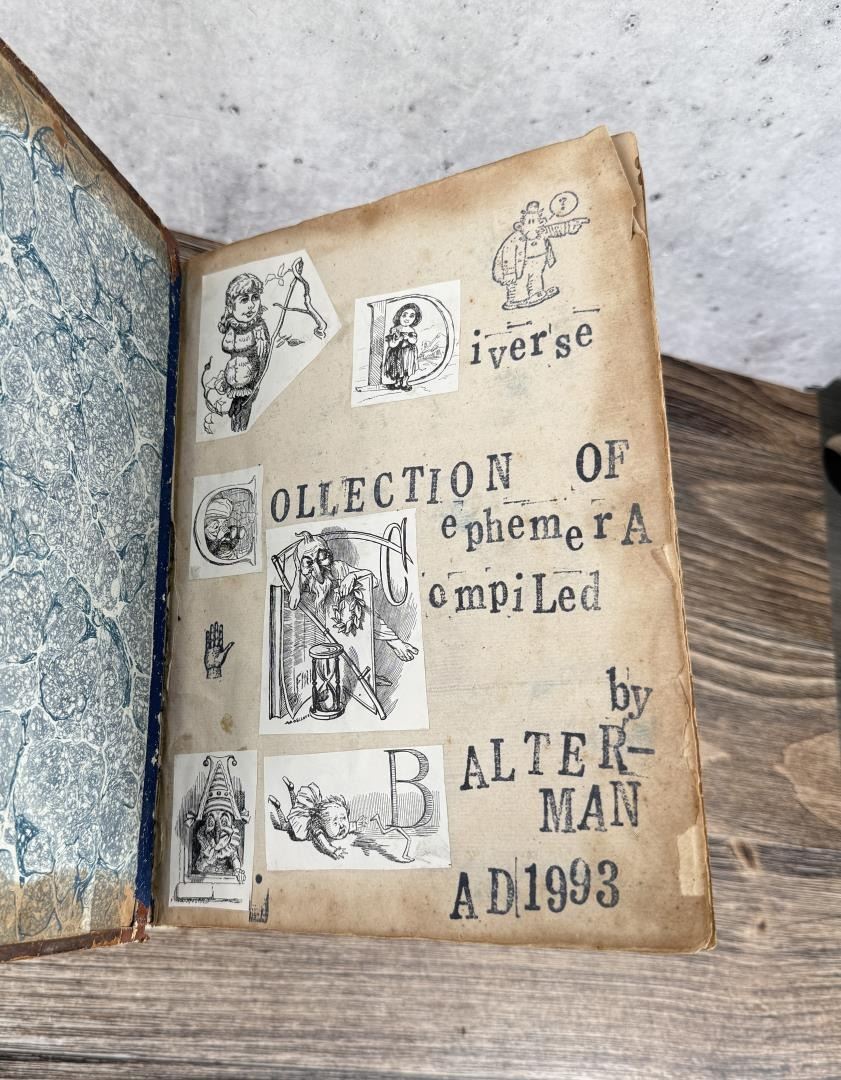 ?
A Diverse
COLLECTION OF
ephemerA
CompiLed
by
A. B. ALTER-
MAN
AD 1993
FINIS